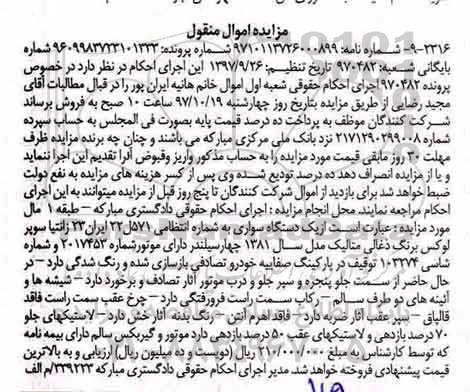 مزایده اموال منقول
۹-۲۳۱۶- شماره نامه: ۹۷۱۰۱۱۳۷۲۶۰۰۰۸۹۹ شماره پرونده: ۹۶۰۹۹۸۳۷۲۳۱۰۱۲۳۳ شماره
بایگانی شعبه: ۹۷۰۴۸۲ تاریخ تنظیم: ۱۳۹۷/۹/۲۶ این اجرای احکام در نظر دارد در خصوص
پرونده ۹۷۰۴۸۲ اجرای احکام حقوقی شعبه اول اموال خانم هانیه ایران پور را در قبال مطالبات آقای
مجید رضایی از طریق مزایده بتاریخ روز چهارشنبه ۹۷/۱۰/۱۹ ساعت ۱۰ صبح به فروش برساند
شرکت کنندگان موظف به پرداخت ده درصد قیمت پایه بصورت فی المجلس به حساب سپرده
۲۱۷۱۲۹۰۲۹۹۰۰۸ نزد بانک ملی مرکزی مبارکه می باشند و چنان چه برنده مزایده ظرف
مهلت ۳۰ روز مابقی قیمت مورد مزایده را به حساب مذکور واریز وقبوض آفرا تقدیم این اجرا ننماید
و یا از مزایده انصراف دهد ده درصد تودیع شده وی پس از کسر هزینه های مزایده به نفع دولت
ضبط خواهد شد برای بازدید از اموال شرکت کنندگان تا پنج روز قبل از مزایده میتوانند به این اجرای
احکام مراجعه نمایند. محل انجام مزایده : اجرای احکام حقوقی دادگستری مبارکه – طبقه ۱ مال
مورد مزایده : عبارت است از یک دستگاه سواری به شماره انتظامی ۵۷۱ل۲۲ ایران ۲۳ زانتیا سوپر
لوکس برنگ ذغالی متالیک مدل سال ۱۳۸۱ چهارسیلندر دارای موتورشماره ۲۰۱۷۴۵۳ و شماره
شاسی ۱۰۳۲۷۴ توقیف در پارکینگ صفاییه خودرو تصادفی بازسازی شده و رنگ شدگی دارد – در
حال حاضر از سمت جلو پنجره و سپر جلو و درب موتور آثار تصادف و برخورد دارد – شیشه ها و
آئینه های دو طرف سالم – رکاب سمت راست فرورفتگی دارد – چرخ عقب سمت راست فاقد
قالپاق – سپر عقب آثار ضربه دارد – فاقد اهرم آنتن – رنگ بدنه آثار خش دارد – لاستیکهای جلو
۷۰ درصد بازدهی و لاستیکهای عقب ۵۰ درصد بازدهی دارد موتور و گیربکس سالم دارای بیمه نامه
که توسط کارشناس به مبلغ ۲۱۰/۰۰۰/۰۰۰ ریال (دویست و ده میلیون ریال) ارزیابی و به بالاترین
قیمت پیشنهادی فروخته خواهد شد. مدیر اجرای احکام حقوقی دادگستری مبارکه ۳۳۹۲۲۳/م الف